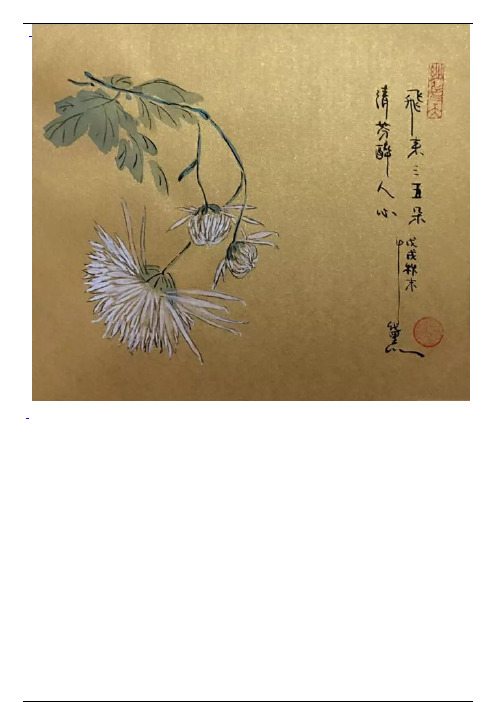 飛來三五朵
清芬醉人心
戊戌秋末